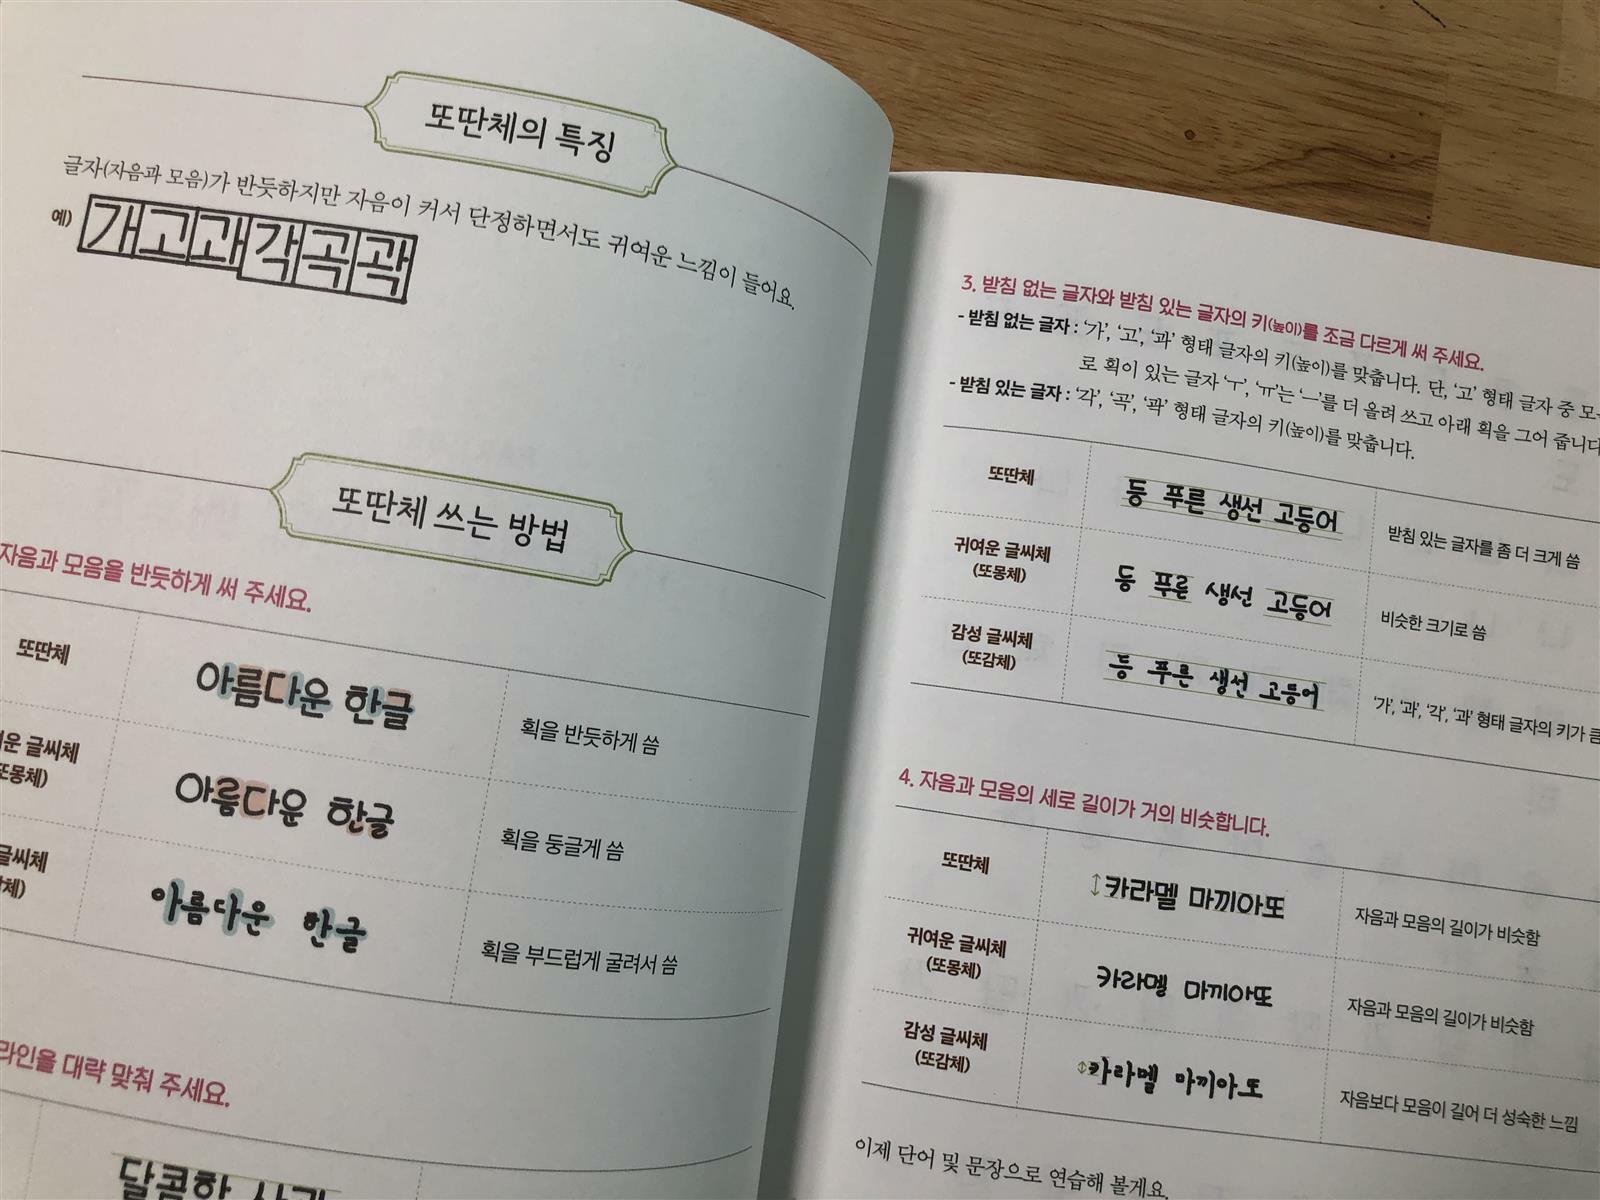 또딴체의 특징
글자(자음과 모음)가 반듯하지만 자음이 커서 단정하면서도 귀여운 느낌이 들어요.
예) 개고과각곡곽
또딴체 쓰는 방법
자음과 모음을 반듯하게 써 주세요.
또딴체 아름다운 한글 획을 반듯하게 씀
글씨체
아름다운 한글 획을 둥글게 씀
글씨체
아름다운 한글 획을 부드럽게 굴려서 씀
라인을 대략 맞춰 주세요.
달콤한
3. 받침 없는 글자와 받침 있는 글자의 키(높이)를 조금 다르게 써 주세요.
- 받침 없는 글자 : '가', '고', '과' 형태 글자의 키(높이)를 맞춥니다. 단, '고' 형태 글자 중
로 획이 있는 글자 'ㅜ', 'ㅠ'는 'ㅡ'를 더 올려 쓰고 아래 획을 그어 줍니다
- 받침 있는 글자 : '각', '곡', '곽' 형태 글자의 키(높이)를 맞춥니다.
또딴체 등 푸른 생선 고등어 받침 있는 글자를 좀 더 크게 씀
귀여운 글씨체
(또몽체) 등 푸른 생선 고등어 비슷한 크기로 씀
감성 글씨체
(또감체) 등 푸른 생선 고등어 '가', '과', '각', '과' 형태 글자의 키가 큼
4. 자음과 모음의 세로 길이가 거의 비슷합니다.
또딴체 카라멜 마끼아또 자음과 모음의 길이가 비슷함
귀여운 글씨체
(또몽체) 카라멜 마끼아또 자음과 모음의 길이가 비슷함
감성 글씨체
(또감체) 카라멜 마끼아또 자음보다 모음이 길어 더 성숙한 느낌
이제 단어 및 문장으로 연습해 볼게요.